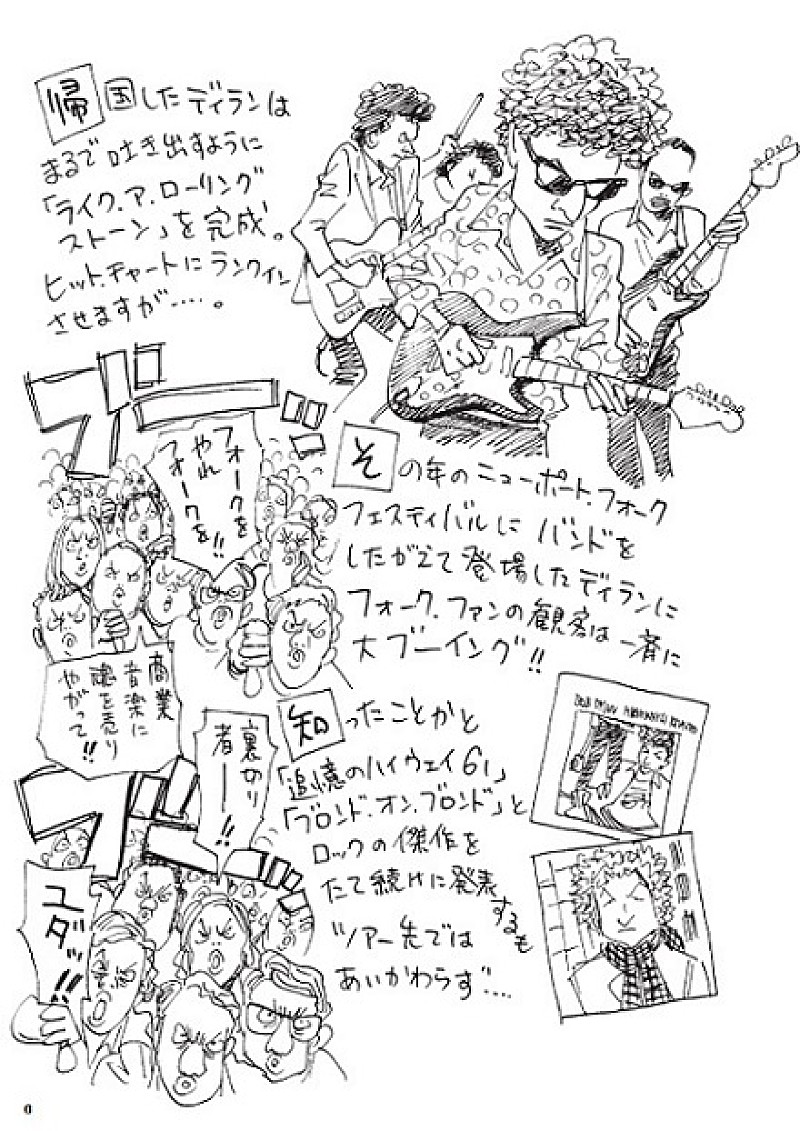 帰国したディランは
まるで吐き出すように
「ライク.ア.ローリング
ストーン」を完成。
ヒット.チャートにランクイン
させますが……。
ブーーッ
フォークを
やれ
フォークを!!
その年のニューポート.フォーク
フェスティバルにバンドを
したがえて登場したディランに
フォーク.ファンの観客は一斉に
大ブーイング!!
商業
音楽に
魂を売り
やがって!!
裏切り
者ーー!!
ブーーッ
ユダッ!!
知ったことかと
「追憶のハイウェイ61」
「ブロンド.オン.ブロンド」と
ロックの傑作を
たて続けに発表
するも
ツアー先では
あいかわらず……
BOB DYLAN HIGHWAY 61 REVISITED
0